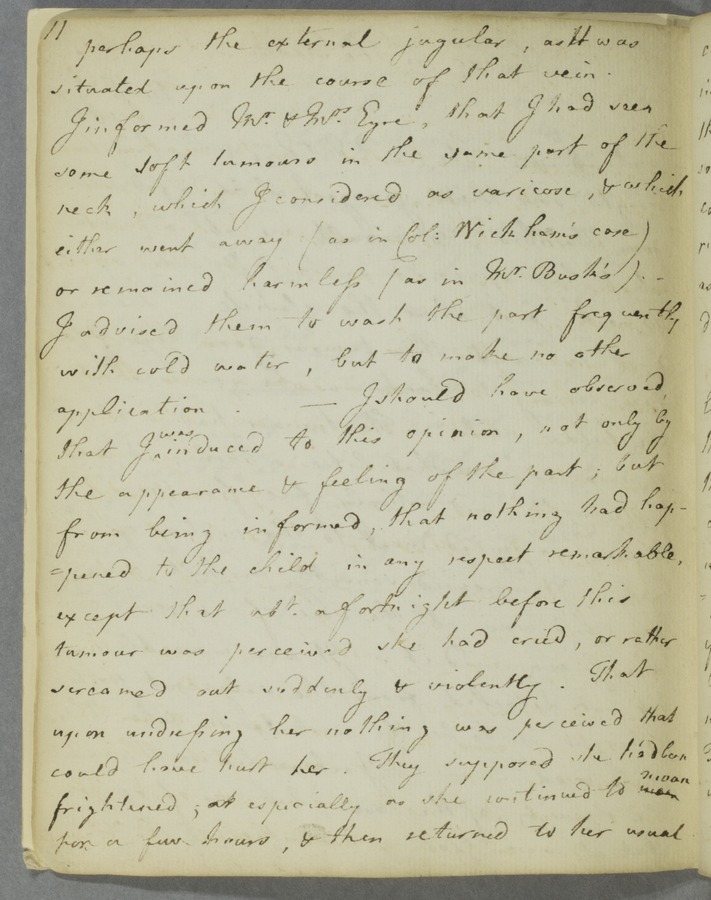 11
perhaps the external jugular, as It was
situated upon the course of that vein.
I informed Mr. & Mrs. Eyre, that I had seen
some soft tumours in the same part of the
neck, which I considered as varicose, & which
either went away (as in Col: Wickham's case)
or remained harmless (as in Mr. Bush's). -
I advised them to wash the part frequently
with cold water, but to make no other
application. — I should have observed,
that I was induced to this opinion, not only by
the appearance & feeling of the part; but
from being informed, that nothing had hap-
=pened to the child in any respect remarkable,
except that abt. a fortnight before this
tumour was perceived she had cried, or rather
screamed out suddenly & violently. That
upon undressing her nothing was perceived that
could have hurt her. They supposed she had been
frightened; especially as she continued to moan
for a few hours, & then returned to her usual